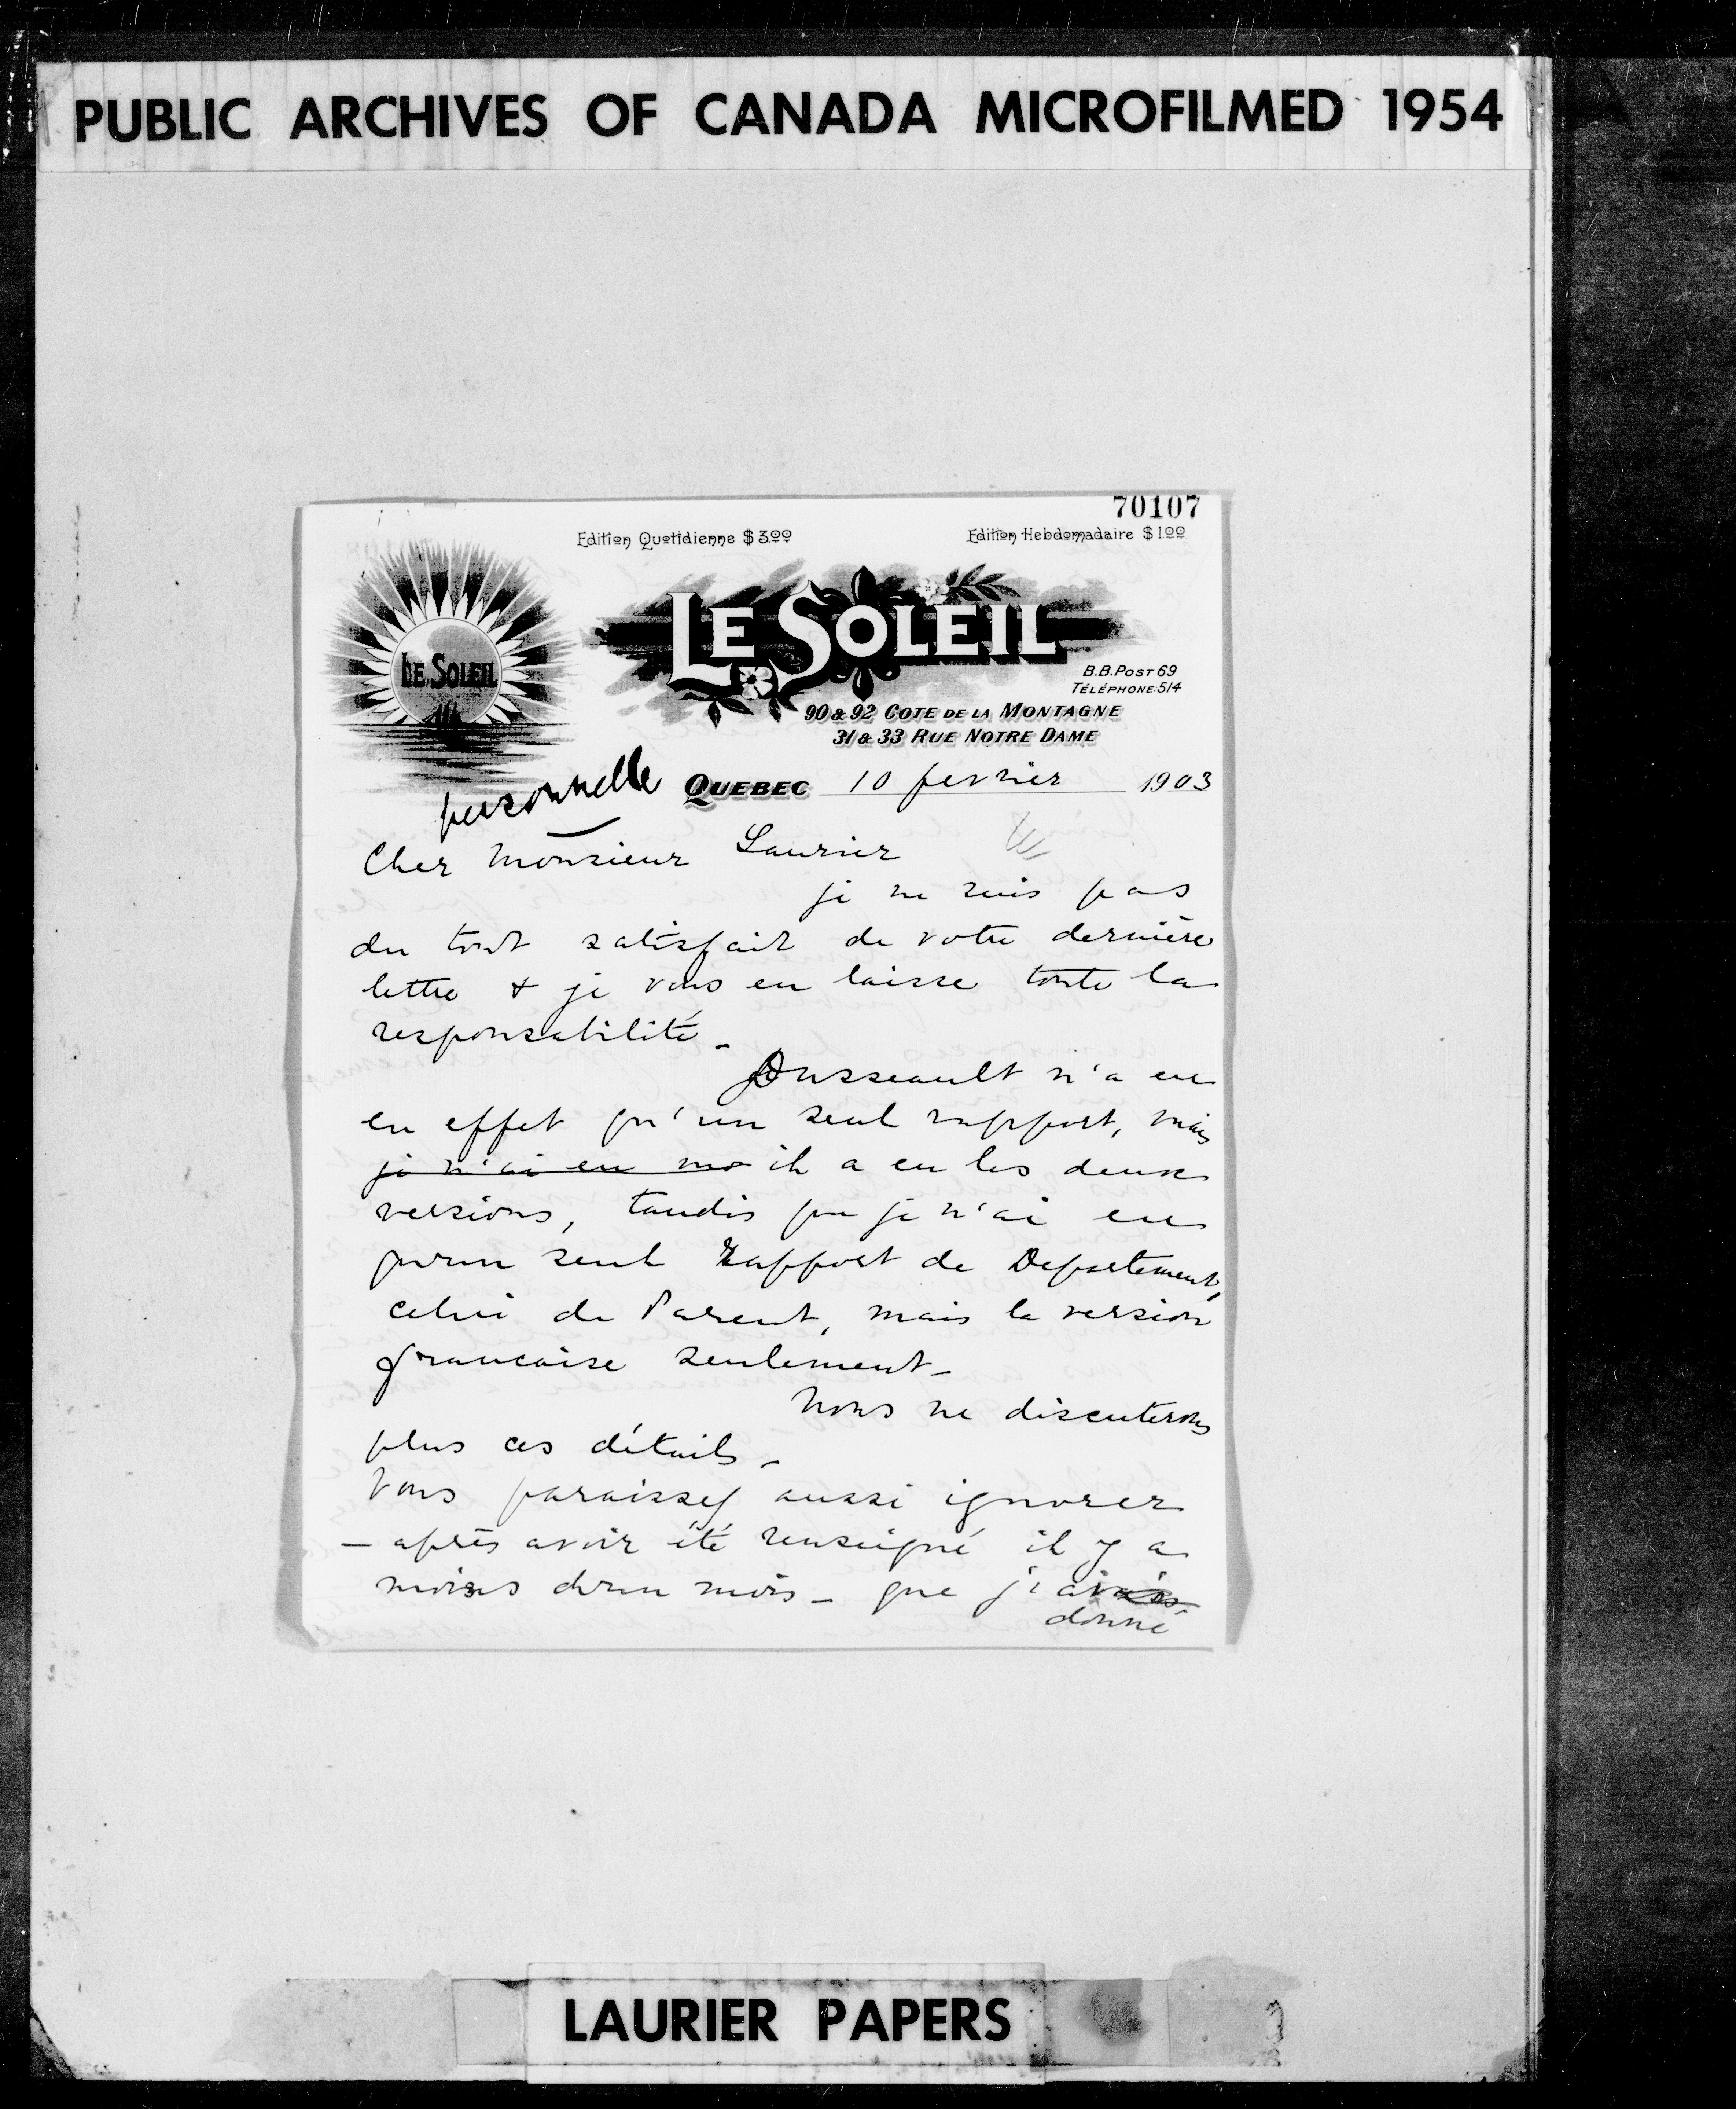 PUBLIC ARCHIVES OF CANADA MICROFILMED 1954
70107
Edition Quotidienne $3.00
Edition Hebdomadaire $1.00
LE SOLEIL
LE SOLEIL
B.B. POST 69
TÉLÉPHONE: 514
90 & 92 COTE DE LA MONTAGNE
31 & 33 RUE NOTRE DAME
personnelle
QUEBEC 10 fevrier 1903
Cher Monsieur Laurier
je ne suis pas
du tout satisfait de votre dernière
lettre & je vous en laisse toute la
responsabilité_
Dusseault n'a eu
en effet qu'un seul rapport, mais
je n'ai eu mo il a eu les deux
versions, tandis que je n'ai eu
qu'un seul Rapport de Departement,
celui de Parent, mais la version
francaise seulement_
Nous ne discuterons
plus ces détails_
Vous paraissez aussi ignorer
— après avoir été renseigné il y a
moins d'un mois _ que j'avais
donné
LAURIER PAPERS